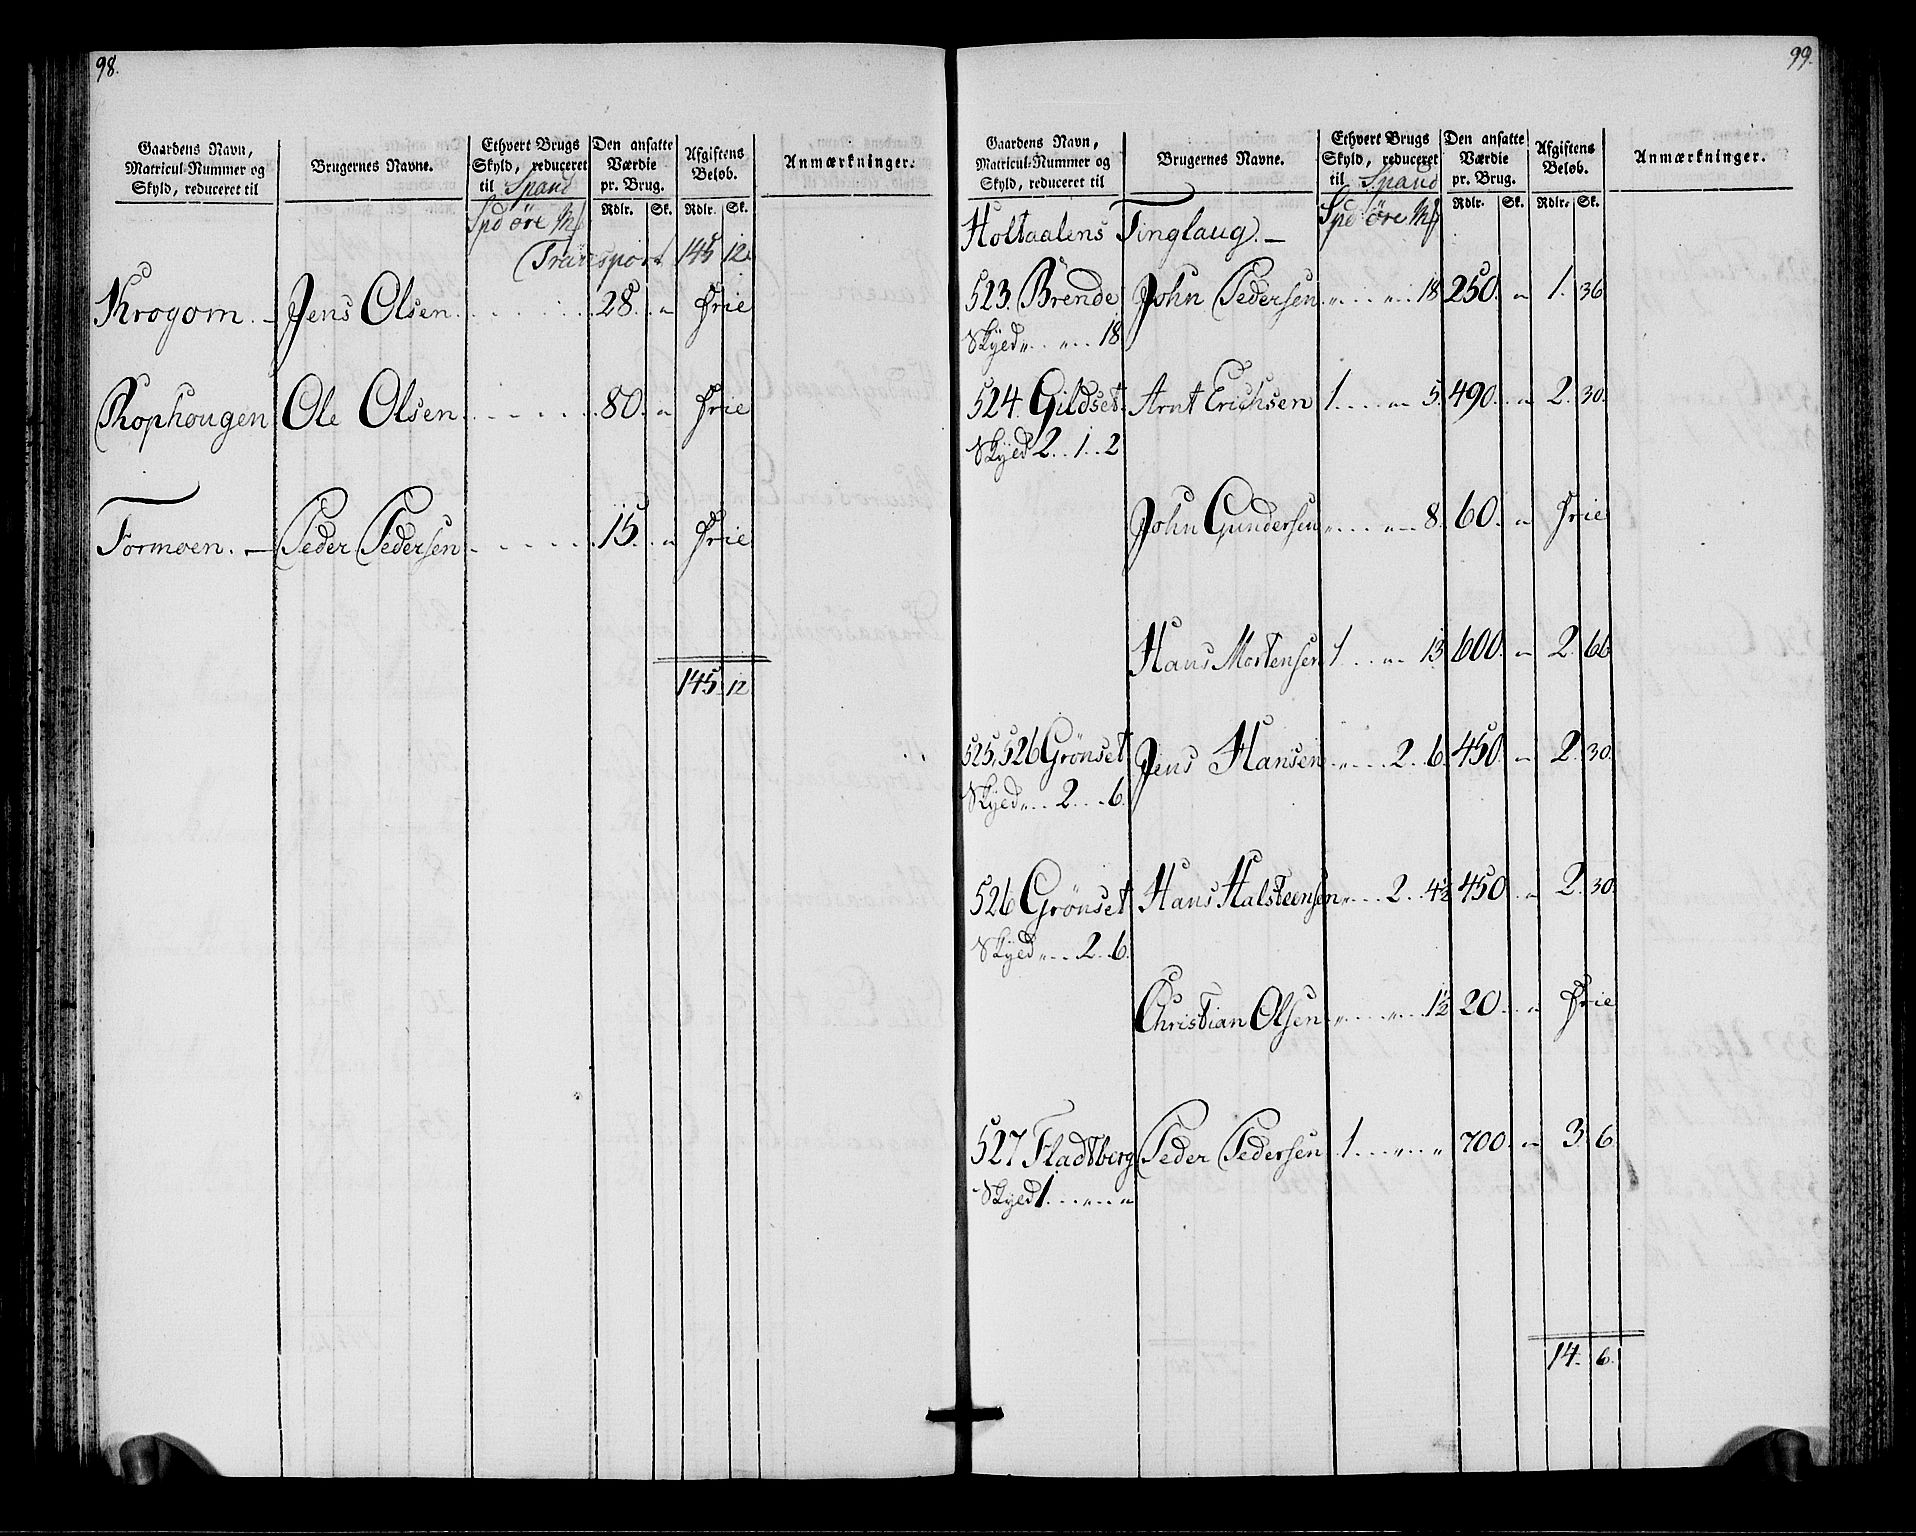 98.
Gaardens Navn, Matricul-Nummer og Skyld, reduceret til
Brugernes Navne.
Ethvert Brugs Skyld, reduceret til Spand
Den ansatte Værdie pr. Brug.
Afgiftens Beløb.
Anmærkninger.
Rdlr. Sk. Rdlr. Sk.
Spd öre Mk
Transport 145 12.
Krogom. — Jens Olsen. 28. " Frie
Rophougen Ole Olsen 80. " Frie
Formoen. — Peder Pedersen 15. " Frie
145. 12
99.
Gaardens Navn, Matricul-Nummer og Skyld, reduceret til
Brugernes Navne.
Ethvert Brugs Skyld, reduceret til Spand
Den ansatte Værdie pr. Brug.
Afgiftens Beløb.
Anmærkninger.
Rdlr. Sk. Rdlr. Sk.
Spd öre Mk
Holtaalens Tinglaug. —
523. Brende John Pedersen " " 18 250. " 1. 36
Skyed " " 18
524. Gildset Arnt Erichsen 1 " 5. 490. " 2. 30.
Skyed 2 . . 1 . . 2
John Gundersen " " 8. 60. " Frie
Hans Mortensen 1 " 13 600. " 2. 66
525, 526 Grönset Jens Hansen " 2. 6. 450. " 2. 30.
Skyed " 2 . . 6.
526 Grönset Hans Halsteensen " 2 . . 4½ 450 " 2. 30.
Skyed " 2 . . 6.
Christian Olsen " " 1½ 20. " Frie
527 Fladtberg Peder Pedersen 1 " " 700 " 3. 6.
Skyed 1 " "
14. 6.